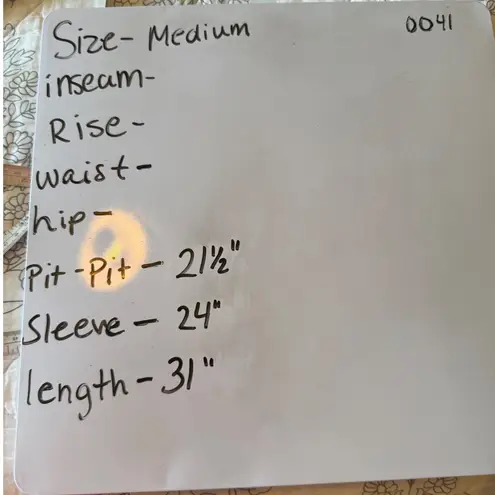 Size- Medium 0041
inseam-
Rise-
waist-
hip-
Pit-Pit- 21½"
Sleeve- 24"
length- 31"